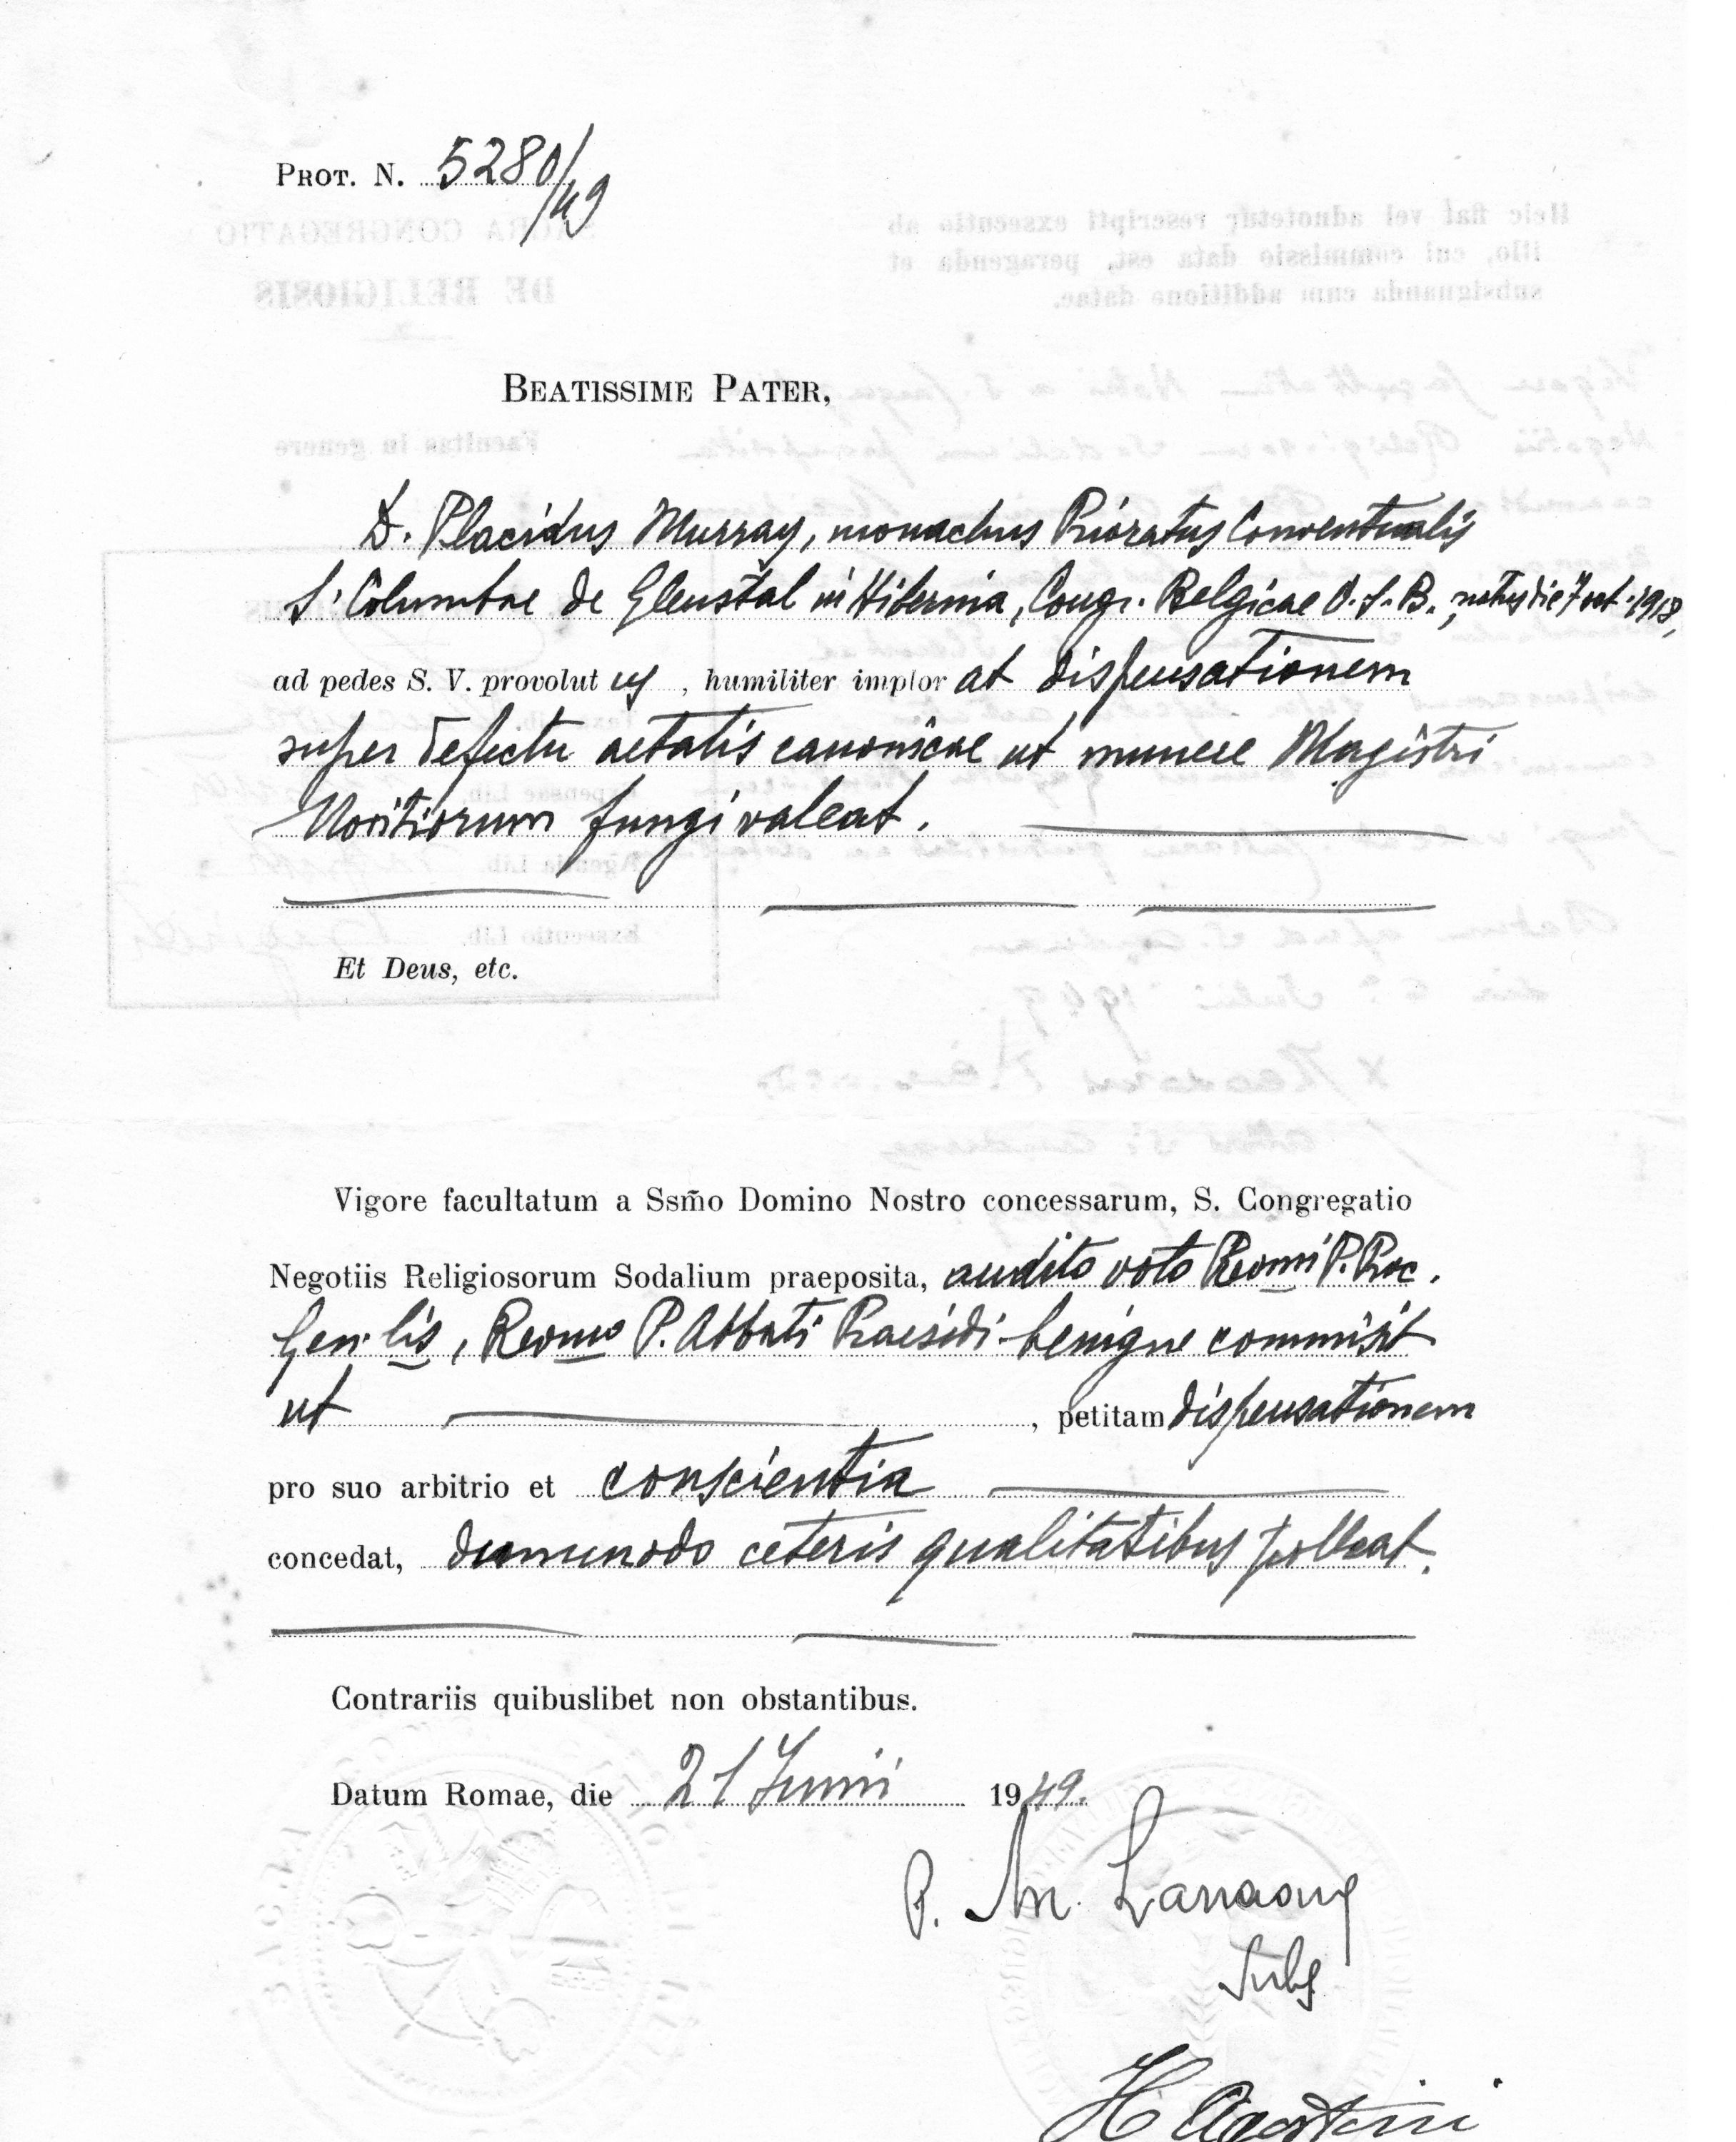 PROT. N. 5280/49
BEATISSIME PATER,
D. Placidus Murray, monachus Prioratus Conventualis
S. Columbae de Glenstal in Hibernia, Congr. Belgicae O. S. B., natus die 7 oct. 1918,
ad pedes S. V. provolutus, humiliter implorat dispensationem
super defectu aetatis canonicae ut munere Magistri
Novitiorum fungi valeat.
Et Deus, etc.
Vigore facultatum a Ssm̃o Domino Nostro concessarum, S. Congregatio
Negotiis Religiosorum Sodalium praeposita, audito voto Revmi P. Proc.
Gen.lis, Revmo P. Abbati Praesidi benigne commisit
ut , petitam dispensationem
pro suo arbitrio et conscientia
concedat, dummodo ceteris qualitatibus polleat.
Contrariis quibuslibet non obstantibus.
Datum Romae, die 21 Junii 1949.
P. Ar. Larraona
Subs
H Agostini